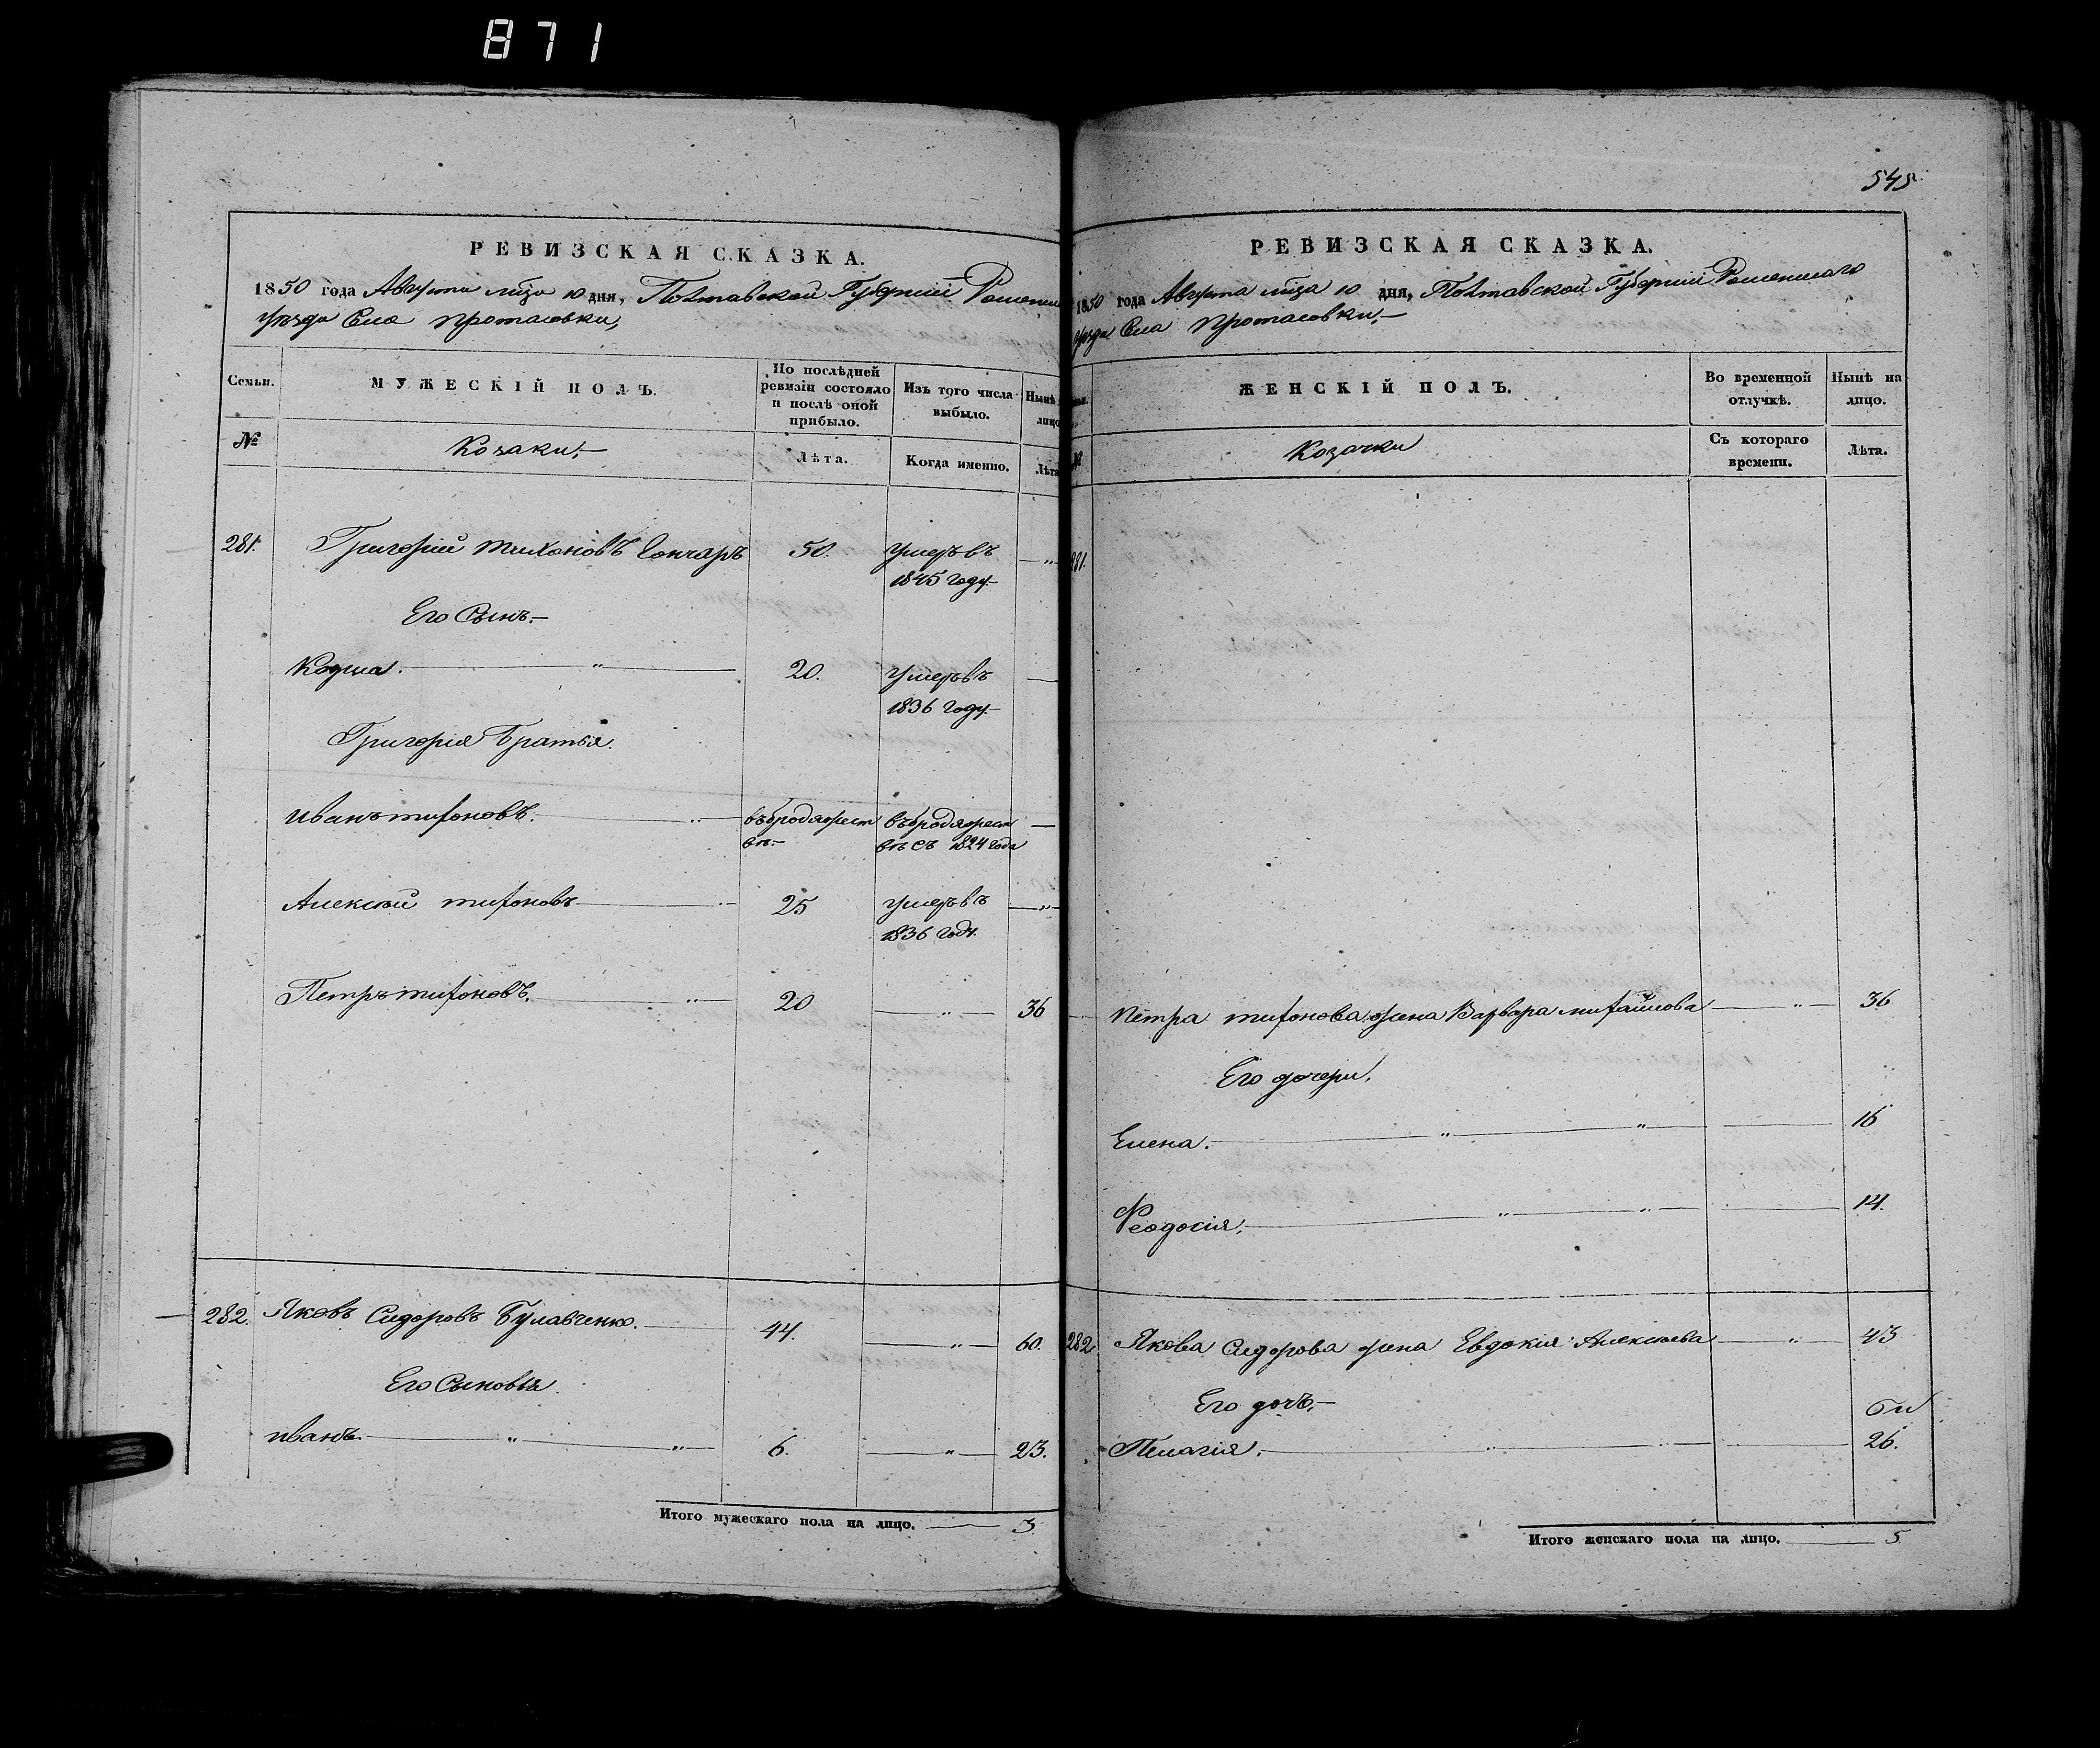 871
РЕВИЗСКАЯ СКАЗКА.
1850 года Августа мца 10 дня, Полтавской Губернии Роменскаго
уезда Села Протасовки,
Семьи. МУЖЕСКІЙ ПОЛЪ. По послѣдней ревизіи состояло и послѣ оной прибыло. Изъ того числа выбыло. Нынѣ лицо
№ Козаки, Лѣта. Когда именно. Лѣта
281. Григорій Тихоновъ Гончаръ 50. умеръ въ
1845 году
Его Сынъ.
Козма. " 20. умеръ въ
1836 году
Григорія братья.
Иванъ Тихоновъ. въ бродяжест въ бродяжест
вѣ вѣ съ 1824 года
Алексѣй Тихоновъ 25 умеръ въ
1836 году.
Петръ Тихоновъ. " 20 " 36
282. Яковъ Сидоровъ Булавченко. 44. " 60.
Его Сыновья
Иванъ. " " 6. " 23.
Итого мужескаго пола на лицо. 3
545
РЕВИЗСКАЯ СКАЗКА.
1850 года Августа мца 10 дня, Полтавской Губернии Роменскаго
уезда Села Протасовки,
ЖЕНСКІЙ ПОЛЪ. Во временной отлучкѣ. Нынѣ на лицо.
№ Козачки Съ котораго времени. Лѣта.
281.
Петра Тихонова жена Варвара Михайлова " 36
Его дочери.
Елена. " " 16
Феодосія. " " 14.
282 Якова Сидорова жена Евдокія Алексѣева " 43
Его дочь.
Пелагія. " 26.
Итого женскаго пола на лицо. 5